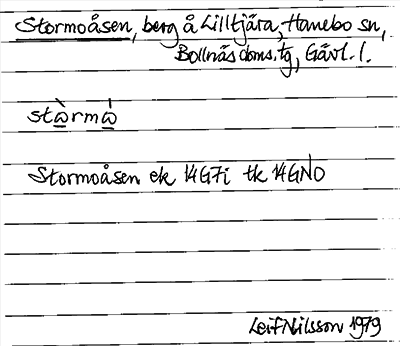 Stormoåsen, berg å Lilltjära, Hanebo sn,
Bollnäs doms.tg, Gävl. l.
stɷ̀rmɷ́
Stormoåsen ek 14G7i tk 14GNO
Leif Nilsson 1979